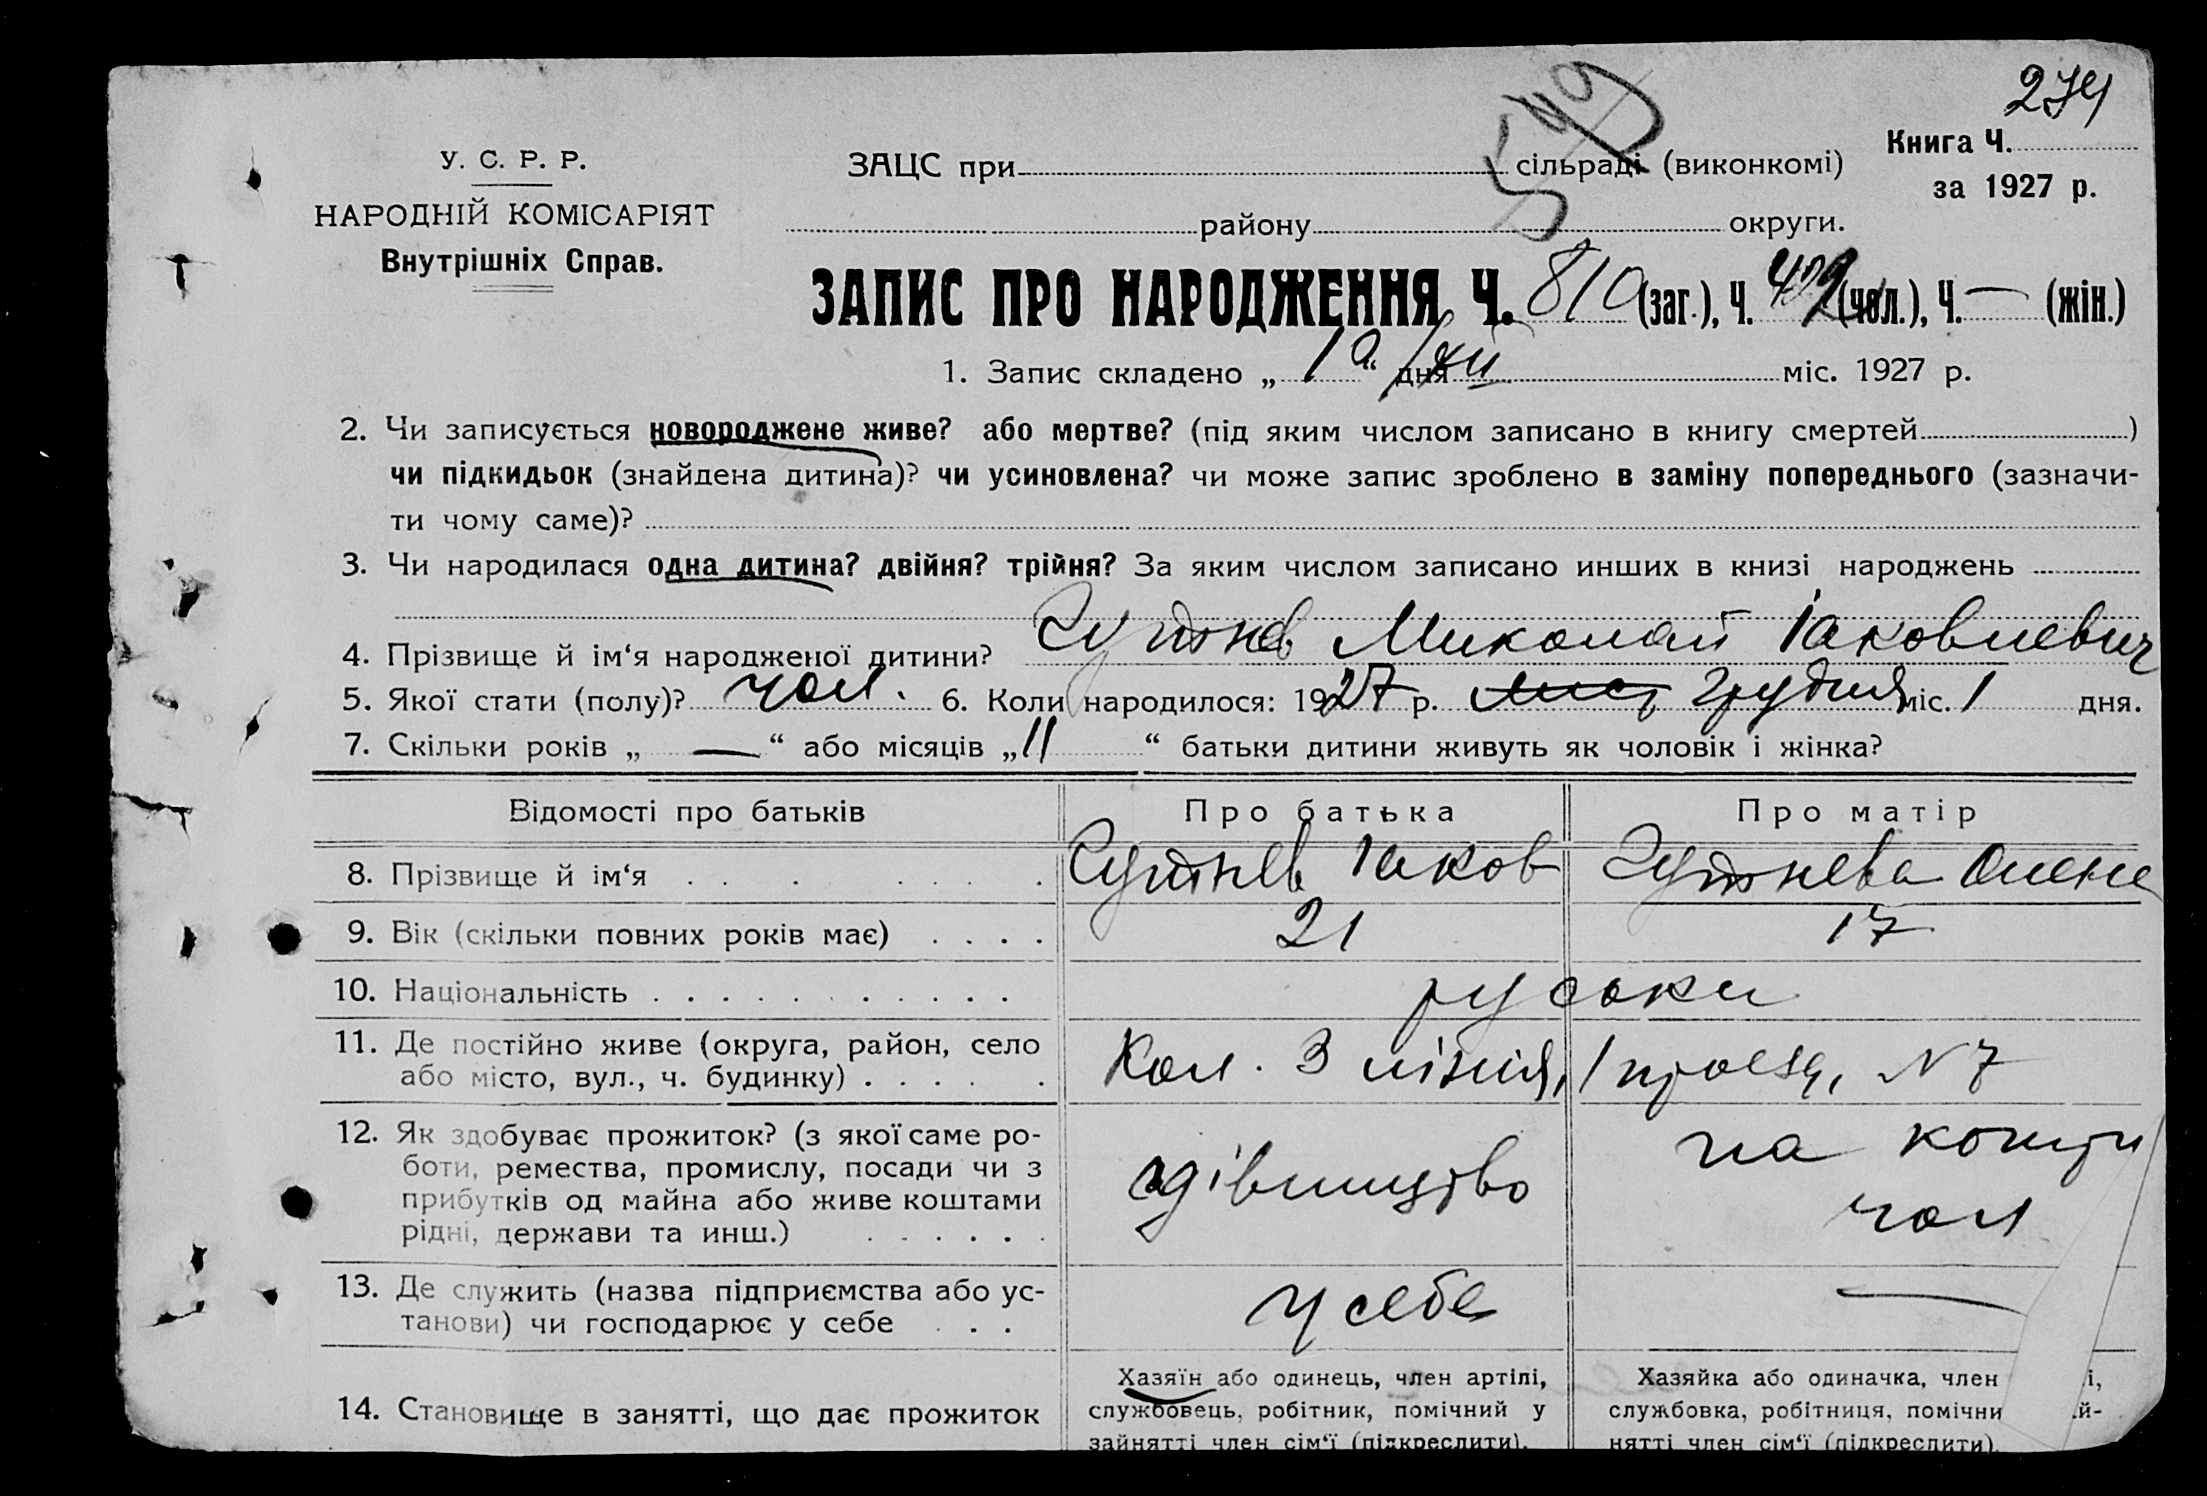 274
549
У. С. Р. Р.
НАРОДНІЙ КОМІСАРІЯТ
Внутрішніх Справ.
ЗАЦС при сільраді (виконкомі)
району округи.
Книга Ч.
за 1927 р.
ЗАПИС ПРО НАРОДЖЕННЯ Ч. 810 (заг.), Ч. 402 (чол.), Ч. — (жін.)
1. Запис складено „ “ дня XII міс. 1927 р.
2. Чи записується новороджене живе? або мертве? (під яким числом записано в книгу смертей )
чи підкидьок (знайдена дитина)? чи усиновлена? чи може запис зроблено в заміну попереднього (зазначи-
ти чому саме)?
3. Чи народилася одна дитина? двійня? трійня? За яким числом записано инших в книзі народжень
4. Прізвище й ім‘я народженої дитини? Миколай Іаковлевич
5. Якої стати (полу)? чол. 6. Коли народилося: 1927 р. лист грудня міс. 1 дня.
7. Скільки років „ — “ або місяців „ 11 “ батьки дитини живуть як чоловік і жінка?
Відомості про батьків Про батька Про матір
8. Прізвище й ім‘я . . . . . . . Іаков Олена
9. Вік (скільки повних років має) . . . . 21 17
10. Національність . . . . . . . . . . . руськи
11. Де постійно живе (округа, район, село
або місто, вул., ч. будинку) . . . . . . Кол. 3 лінія, 1 проезд, N 7
12. Як здобуває прожиток? (з якої саме ро-
боти, ремества, промислу, посади чи з
прибутків од майна або живе коштами
рідні, держави та инш.) . . . . . .
на кошти
чол
13. Де служить (назва підприємства або ус-
танови) чи господарює у себе . . . у себе —
14. Становище в занятті, що дає прожиток
Хазяїн або одинець, член артілі,
службовець, робітник, помічний у
зайнятті член сім‘ї (підкреслити).
Хазяйка або одиначка, член і,
службовка, робітниця, помічни й-
нятті член сім‘ї (підкреслити).